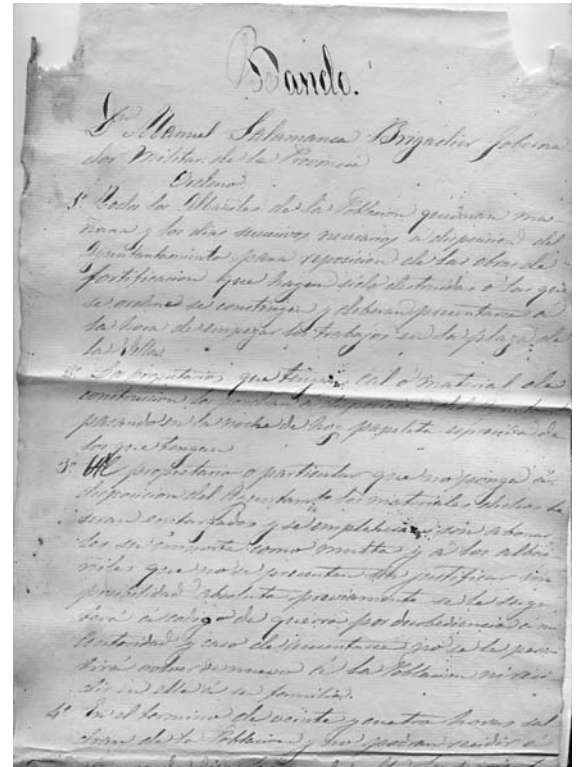 Bando.
Dn Manuel Salamanca Brigadier Goberna
dor Militar de la Provincia
Ordeno
1º Todos los Albañiles de la Poblacion quedaran ma
ñana y los dias sucesivos necesarios á disposicion del
Ayuntamiento para reposicion de las obras de
fortificacion que hayan sido destruidas o las que
se ordene se construyan y deberan presentarse á
la hora de empezar los trabajos en la plaza de
la Villa.
2º Los propietarios que tengan cal ó material de
construccion lo á disposicion del
pasando en la noche de hoy papeleta espresiva de
los que tengan
3º Al propietario o particular que no ponga á
disposicion del Ayuntamto los materiales dichos le
seran embargados y se emplearan sin abonar
les su importe como multa y á los alba
ñiles que no se presentan sin justificar im
posibilidad absoluta previamente se le suge
tará á código de guerra por desobediencia á mi
autoridad y caso de ausentarse no se le permi
tirá volver de nuevo á la Poblacion ni resi
dir en ella á su familia.
4º En el termino de veinte y cuatro horas sal
dran de la Poblacion y no podran residir á